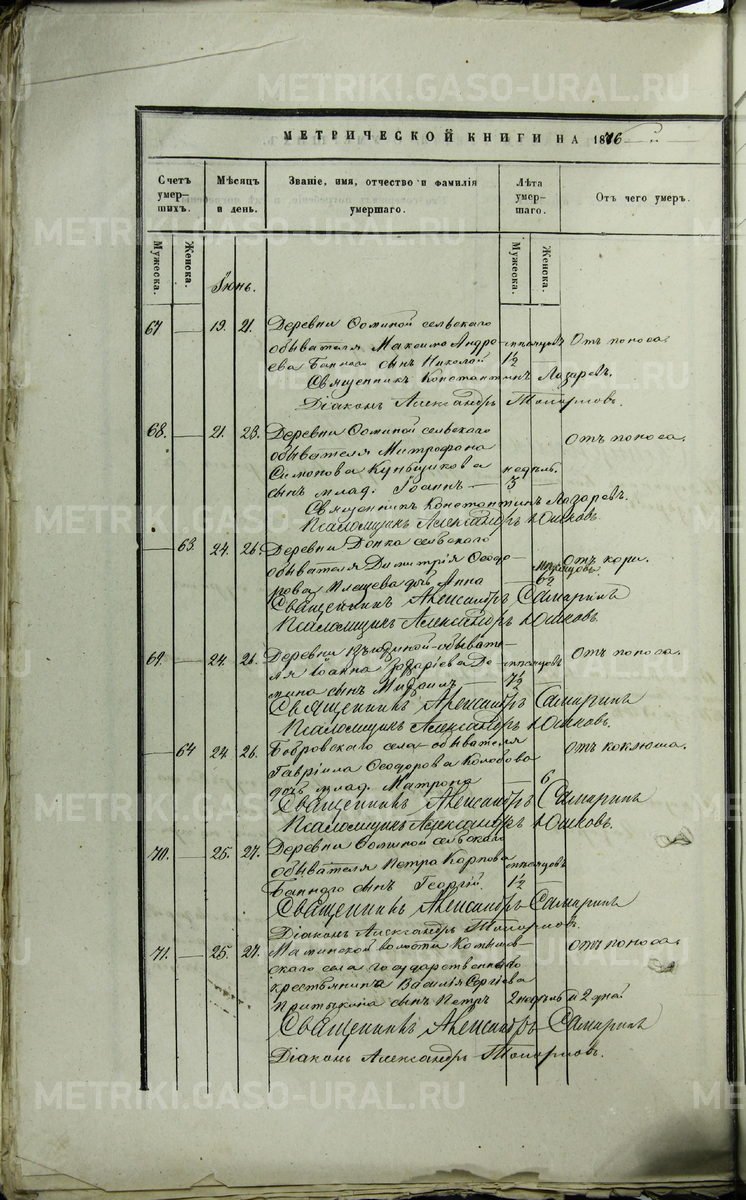 METRIKI.GASO-URAL.RU
МЕТРИЧЕСКОЙ КНИГИ НА 1876
Счетъ умер- шихъ.
Мѣсяцъ и день.
Званіе, имя, отчество и фамилія умершаго.
Лѣта умер- шаго.
Отъ чего умеръ.
Мужеска.
Женска.
Мужеска.
Женска.
Іюнь.
67 — 19. 21. Деревни Осминой сельскаго
обывателя Максима Андре-
ева сынъ Николай 1½ Отъ поноса
Священникъ Константинъ Лазаревъ.
Діаконъ Александръ
68. — 21. 23. Деревни Осминой сельскаго Отъ поноса.
обывателя Митрофана
Симонова Кунщикова недѣль.
сынъ млад. Іоаннъ — 3 —
Священникъ Константинъ Лазаревъ.
Псаломщикъ Александръ Юшковъ.
— 63. 24. 26. Деревни сельскаго
обывателя Димитрія Ѳеодо- мѣсяцовъ Отъ кори.
рова дочь Анна
Священникъ Александръ Самаринъ
Псаломщикъ Александръ Юшковъ.
69. — 24. 26. Деревни обывате- Отъ поноса.
ля Іоанна
сынъ Михаилъ — 7½
Священникъ Александръ Самаринъ
Псаломщикъ Александръ Юшковъ.
— 64 24. 26. Бобровскаго села обывателя Отъ коклюша.
Гавріила Ѳеодорова Колобова
дочь млад. Матрона — 6
Священникъ Александръ Самаринъ
Псаломщикъ Александръ Юшковъ.
70. — 25. 27. Деревни Осминой сельскаго
обывателя Петра Карпова
сынъ Георгій. 1½
Священникъ Александръ Самаринъ
Діаконъ Александръ
71. — 25. 27. Маминской волости Отъ поноса
скаго села государственнаго
крестьянина Василія Сергіева
сынъ Петръ 2 недѣль и 2 дней
Священникъ Александръ Самаринъ
Діаконъ Александръ
METRIKI.GASO-URAL.RU